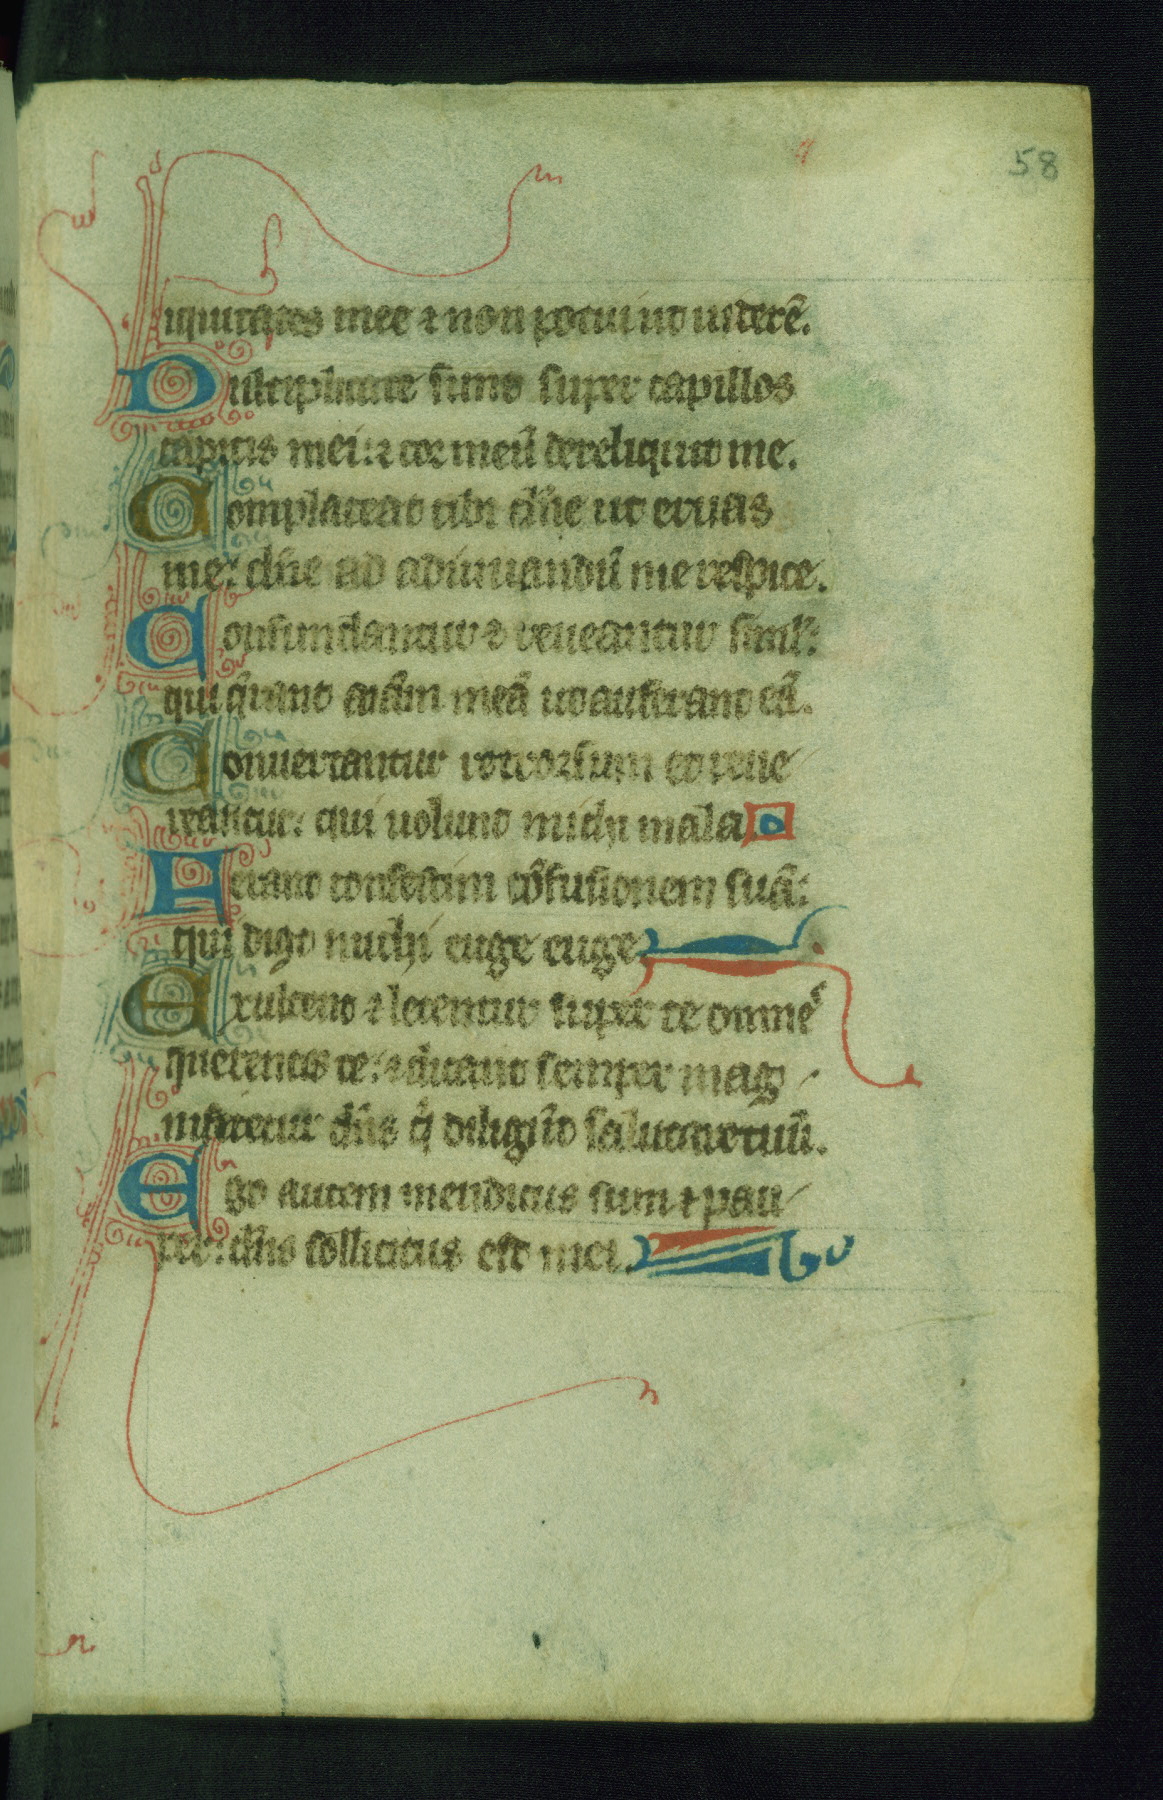 58
iquitates mee ⁊ non potui ut uiderē.
Multiplicate sunt super capillos
capitis mei: ⁊ cor meū dereliquit me.
Complaceat tibi dn̄e ut eruas
me: dn̄e ad adiuuandū me respice.
Confundantur ⁊ reueantur siml':
qui q̄runt aīam meā ut auferant eā.
Conuertantur retrorsum et reue
reantur: qui uolunt michi mala
Ferant confestim cōfusionem suā:
qui dicūt michi euge euge
Exultent ⁊ letentur super te omnes
querentes te: ⁊ dicant semper mag
nificetur dn̄s q̄ diligūt salutare tuū.
Ego autem mendicus sum ⁊ pau
per: dn̄s sollicitus est mei.